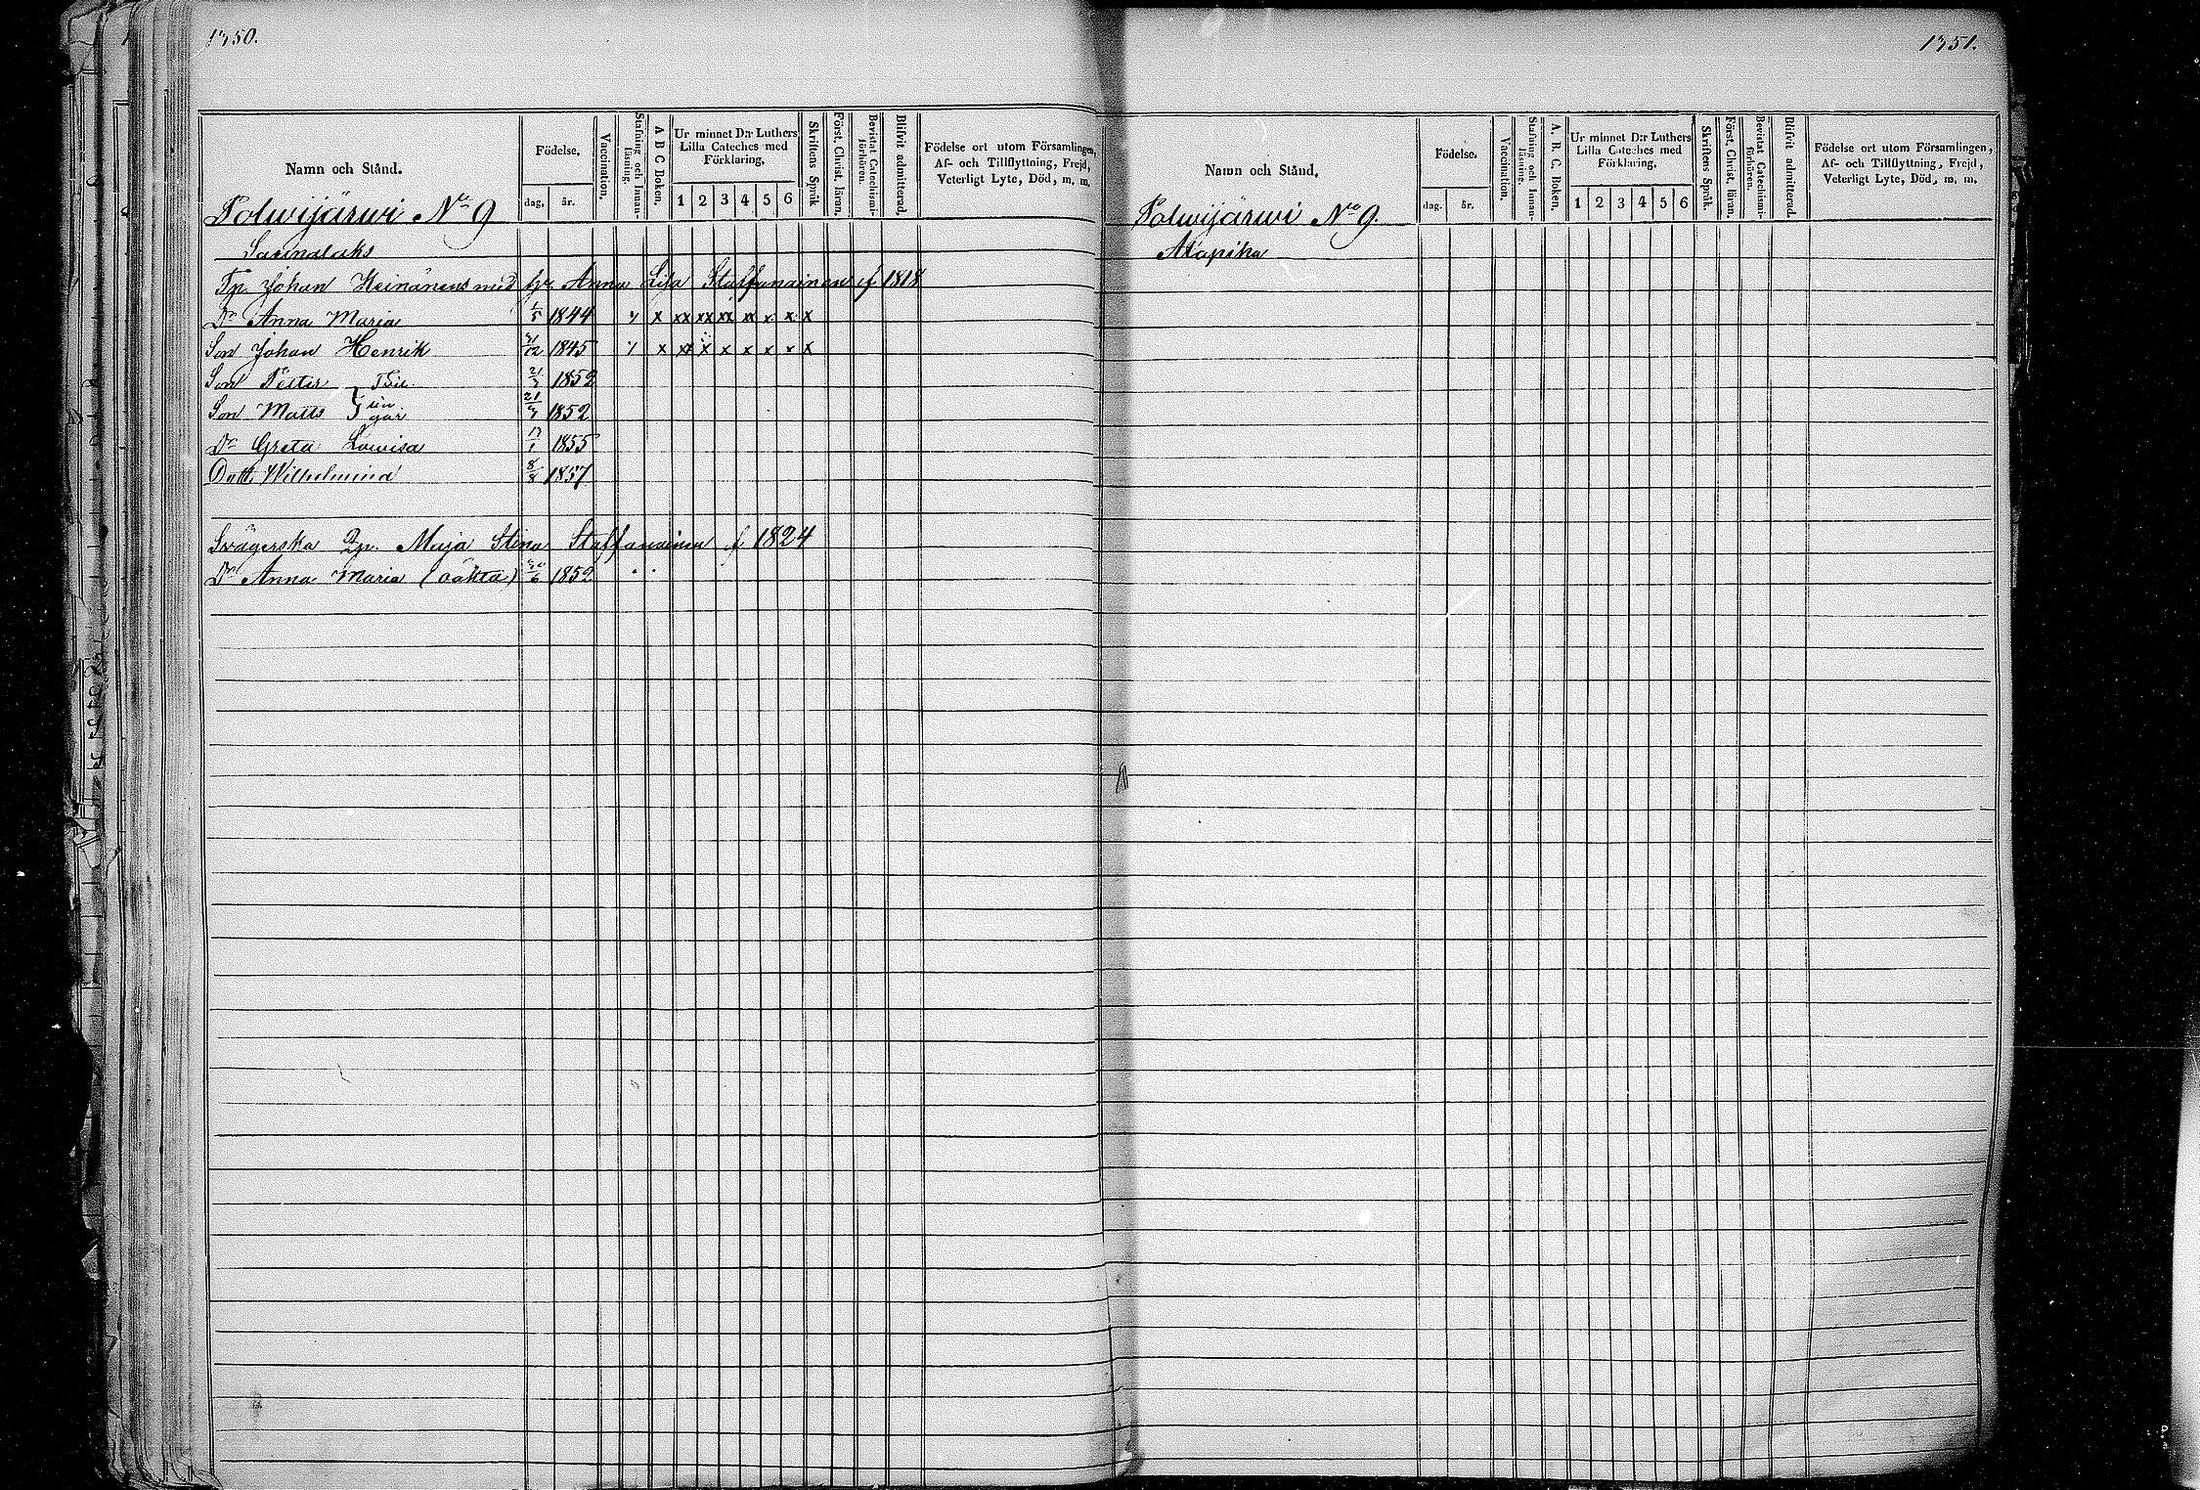 1350.
Namn och Stånd.
Födelse,
dag,
år.
Vaccination,
Stafning och Innan-läsning.
A B C Boken,
Ur minnet D:r Luthers
Lilla Cateches med
Förklaring,
1 2 3 4 5 6
Skriftens Språk
Först. Christ. läran,
Bevistat Catechismi-förhören.
Blifvit admitterad.
Födelse ort utom Församlingen,
Af- och Tillflyttning, Frejd,
Veterligt Lyte, Död, m. m.
Polwijärwi No 9
Tp. Johan Heinänens med hr Anna Lisa Staffanainen f 1818
Dr Anna Maria 1/5 1844 x xx xx xx x x x x
Son Johan Henrik 1845 x x x x x x x x
Son Petter 21/7 1852
Son Matts 21/7 1852
Dr Greta Lowisa 1855
Dott. Wilhelmina 8/8 1857
Svägerska Maja Stina Staffanainen f 1824
Dr Anna Maria (oäkta) 1852
1351.
Namn och Stånd.
Födelse,
dag.
år.
Vaccination,
Stafning och Innan-läsning.
A. B. C. Boken,
Ur minnet D:r Luthers
Lilla Cateches med
Förklaring,
1 2 3 4 5 6
Skriftens Språk.
Först, Christ. läran,
Bevistat Catechismi-förhören.
Blifvit admitterad.
Födelse ort utom Församlingen,
Af- och Tillflyttning, Frejd,
Veterligt Lyte, Död, m. m.
Polwijärwi No 9.